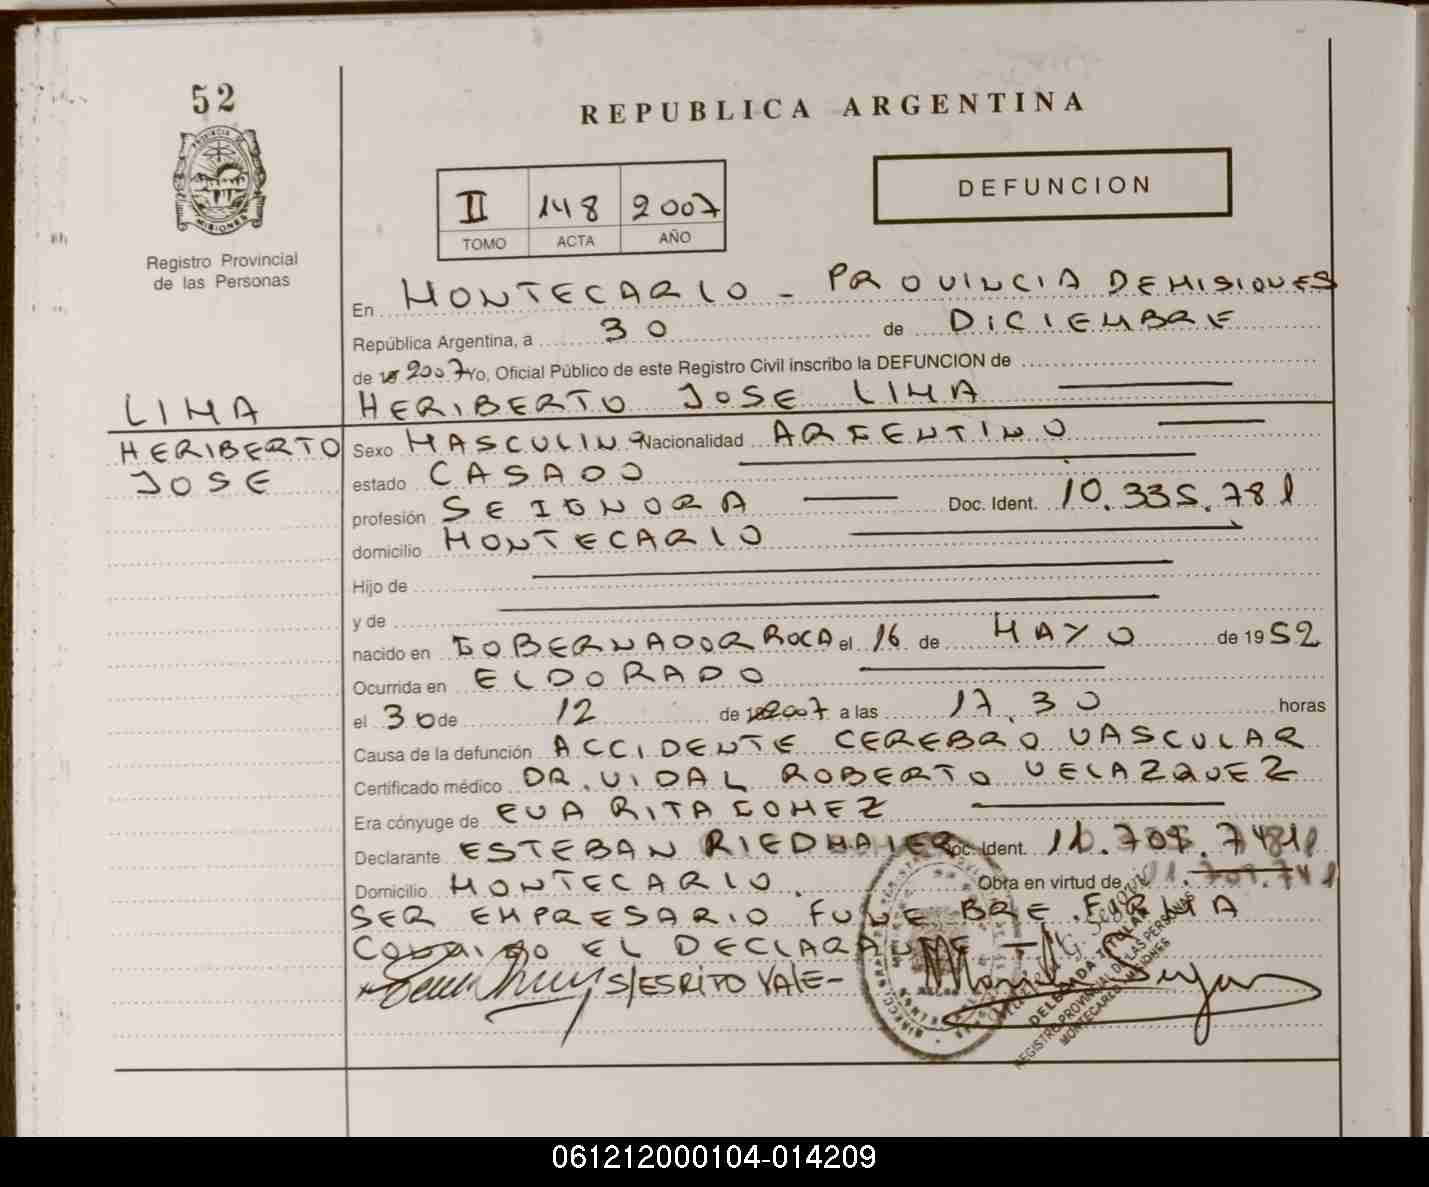 52
REPUBLICA ARGENTINA
PROVINCIA DE
MISIONES
Registro Provincial
de las Personas
II 148 2007
TOMO ACTA AÑO
DEFUNCION
En MONTECARLO - PROVINCIA DE MISIONES
República Argentina, a 30 de DICIEMBRE
de 2007 Yo, Oficial Público de este Registro Civil inscribo la DEFUNCION de
LIMA
HERIBERTO JOSE LIMA
HERIBERTO
JOSE
Sexo MASCULINO Nacionalidad ARGENTINO
estado CASADO
profesión SE IGNORA Doc. Ident. 10.335.781
domicilio MONTECARLO
Hijo de
y de
nacido en GOBERNADOR ROCA el 16 de MAYO de 1952
Ocurrida en ELDORADO
el 30 de 12 de 2007 a las 17.30 horas
Causa de la defunción ACCIDENTE CEREBRO VASCULAR
Certificado médico DR. VIDAL ROBERTO VELAZQUEZ
Era cónyuge de EVA RITA GOMEZ
Declarante ESTEBAN RIEDMAIER Doc. Ident.
Domicilio MONTECARLO. Obra en virtud de
SER EMPRESARIO FUNEBRE. FIRMA
EL DECLARANTE
S/ESRITO VALE-
DELEGADA TITULAR
REGISTRO PROVINCIAL DE LAS PERSONAS
MONTECARLO MISIONES
061212000104-014209